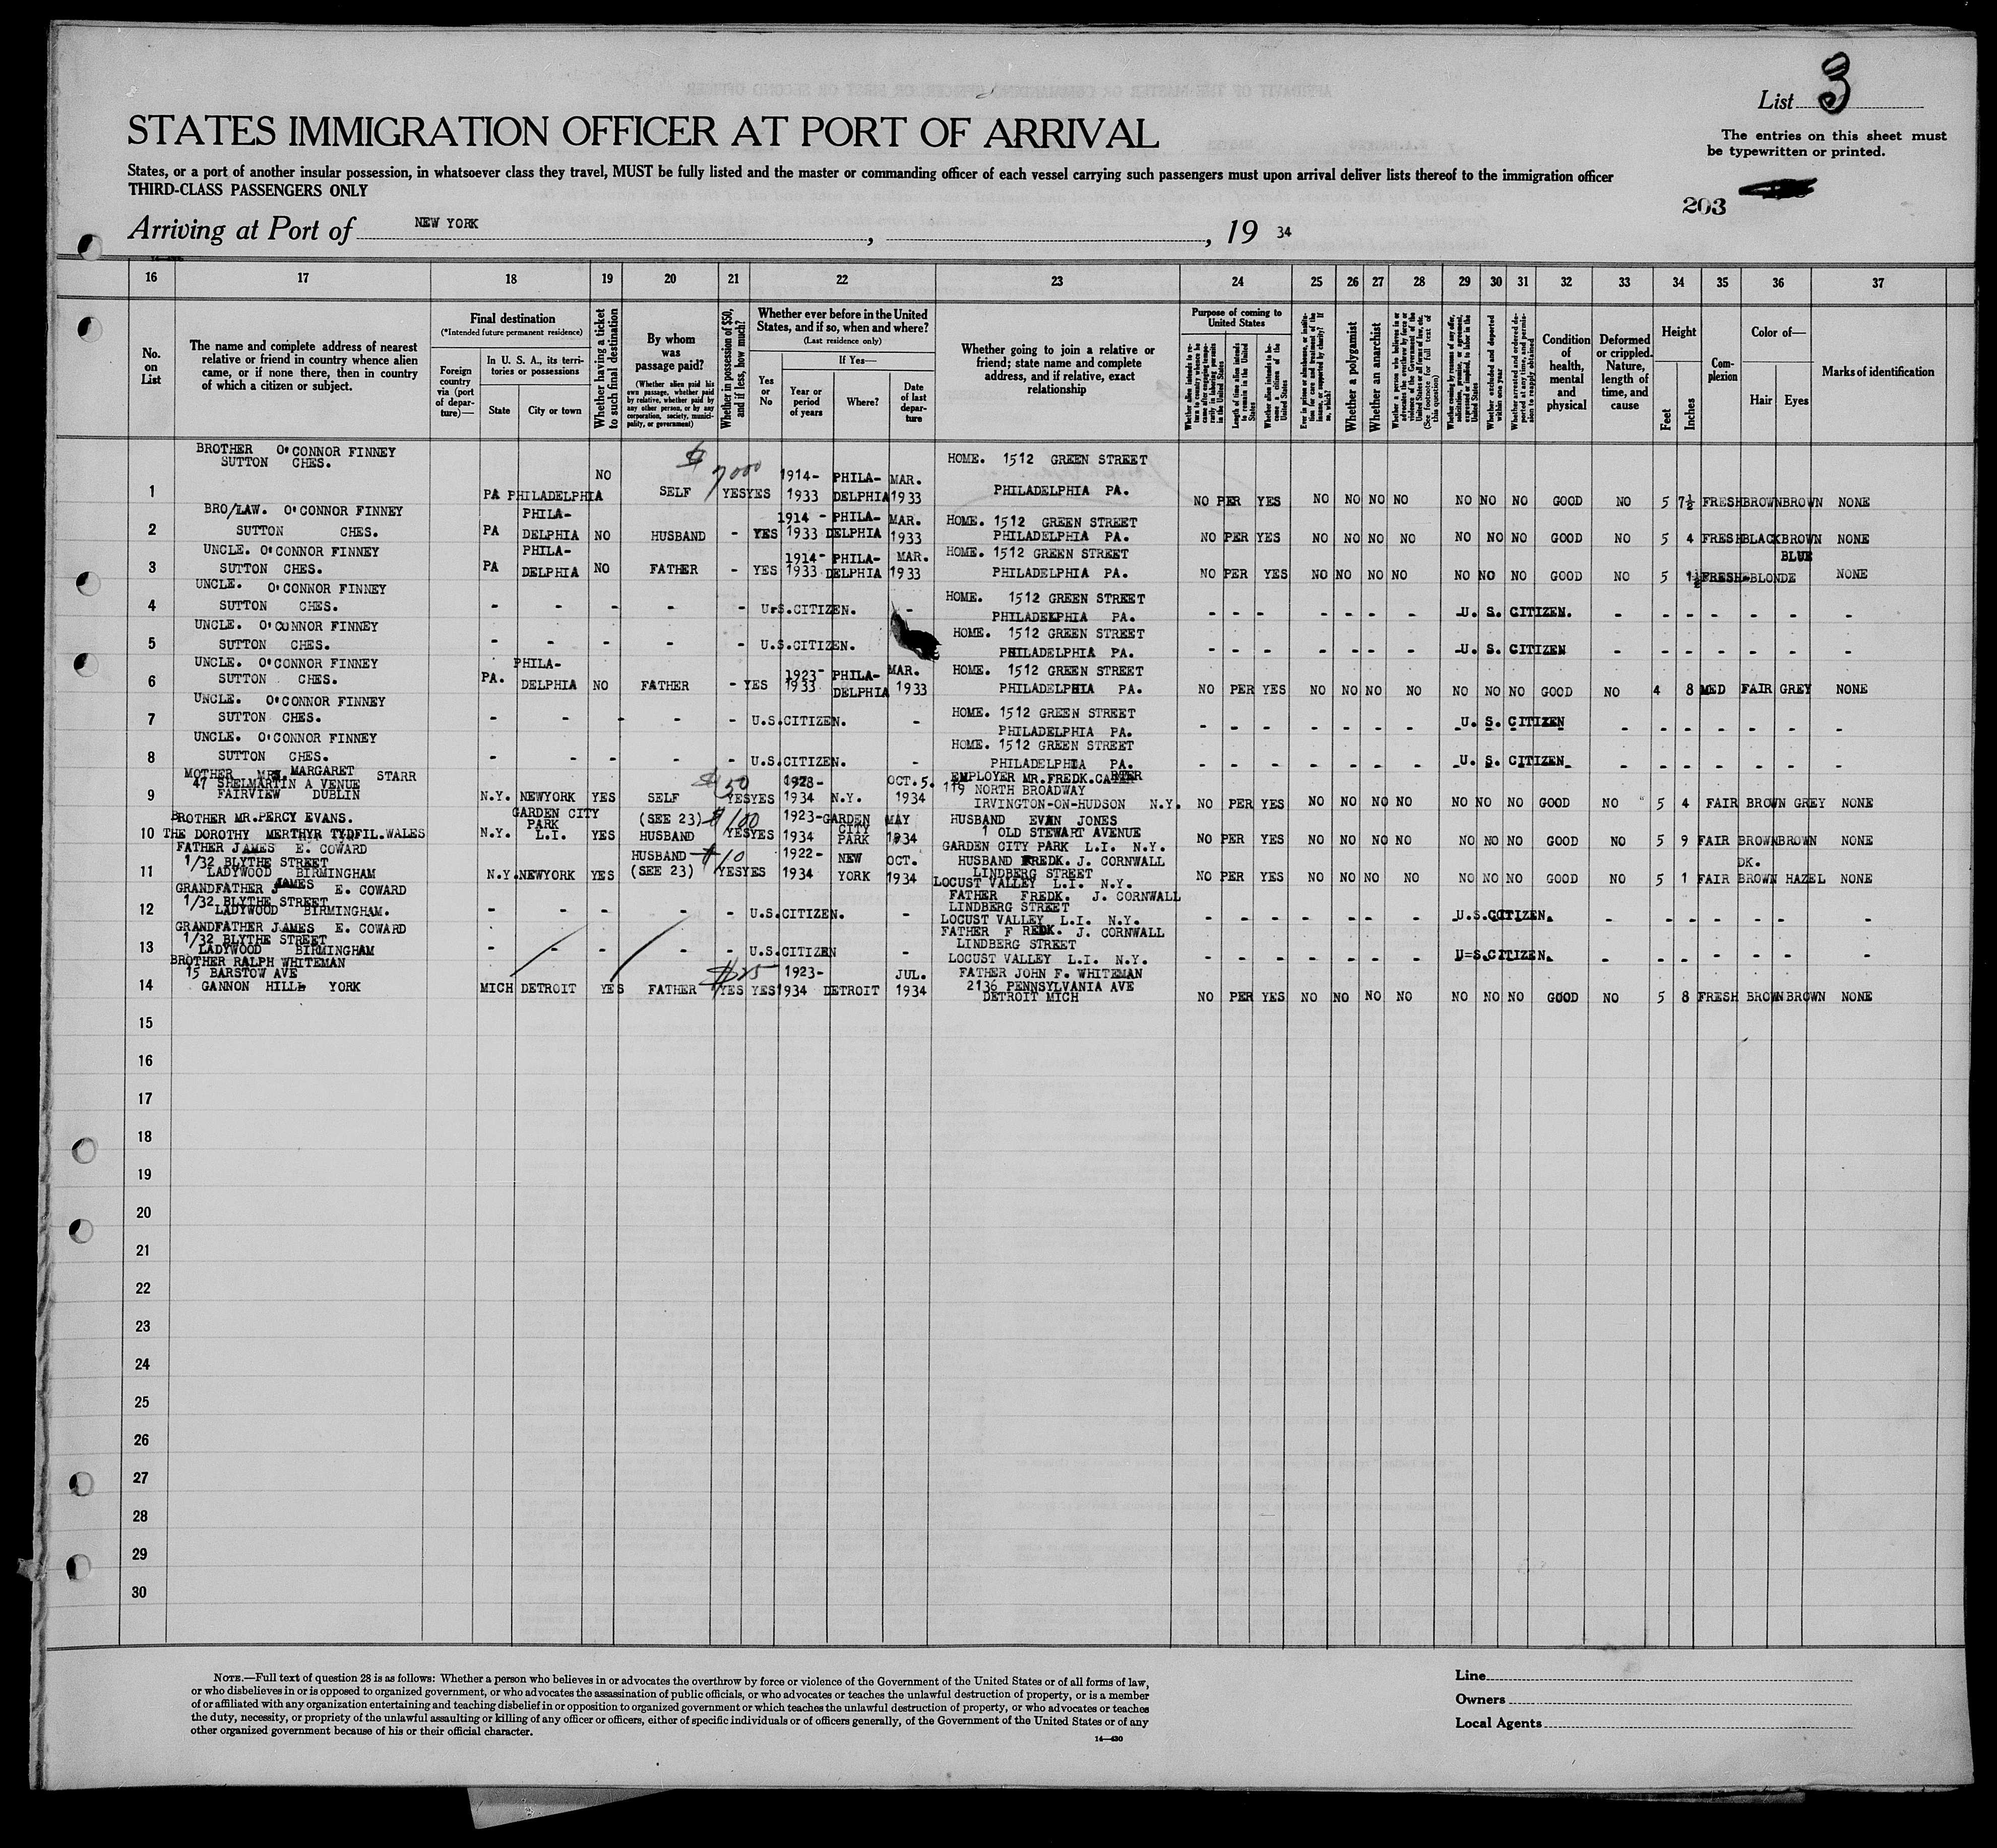 List 3
STATES IMMIGRATION OFFICER AT PORT OF ARRIVAL
The entries on this sheet must
be typewritten or printed.
States, or a port of another insular possession, in whatsoever class they travel, MUST be fully listed and the master or commanding officer of each vessel carrying such passengers must upon arrival deliver lists thereof to the immigration officer
THIRD-CLASS PASSENGERS ONLY
203
Arriving at Port of NEW YORK , , 19 34
16 17 18 19 20 21 22 23 24 25 26 27 28 29 30 31 32 33 34 35 36 37
No. on List
The name and complete address of nearest relative or friend in country whence alien came, or if none there, then in country of which a citizen or subject.
Final destination
(*Intended future permanent residence)
Foreign country via (port of departure)—
In U. S. A., its territories or possessions
State
City or town
Whether having a ticket to such final destination
By whom was passage paid?
(Whether alien paid his own passage, whether paid by relative, whether paid by any other person, or by any corporation, society, municipality, or government)
Whether in possession of $50, and if less, how much?
Whether ever before in the United States, and if so, when and where?
(Last residence only)
Yes or No
If Yes—
Year or period of years
Where?
Date of last departure
Whether going to join a relative or friend; state name and complete address, and if relative, exact relationship
Purpose of coming to United States
Whether alien intends to return to country whence he came after engaging temporarily in laboring pursuits in the United States
Length of time alien intends to remain in the United States
Whether alien intends to become a citizen of the United States
Ever in prison or almshouse, or institution for care and treatment of the insane, or supported by charity? If so, which?
Whether a polygamist
Whether an anarchist
Whether a person who believes in or advocates the overthrow by force or violence of the Government of the United States or all forms of law, etc. (See footnote for full text of this question)
Whether coming by reason of any offer, solicitation, promise, or agreement, expressed or implied, to labor in the United States
Whether excluded and deported within one year
Whether arrested and ordered deported at any time, and permission to reapply obtained
Condition of health, mental and physical
Deformed or crippled. Nature, length of time, and cause
Height
Feet
Inches
Complexion
Color of—
Hair
Eyes
Marks of identification
1 BROTHER O'CONNOR FINNEY SUTTON CHES. PA PHILADELPHIA NO SELF $ 7000 YES YES 1914- 1933 PHILA- DELPHIA MAR. 1933 HOME. 1512 GREEN STREET PHILADELPHIA PA. NO PER YES NO NO NO NO NO NO NO GOOD NO 5 7½ FRESH BROWN BROWN NONE
2 BRO/LAW. O'CONNOR FINNEY SUTTON CHES. PA PHILA- DELPHIA NO HUSBAND - YES 1914 - 1933 PHILA- DELPHIA MAR. 1933 HOME. 1512 GREEN STREET PHILADELPHIA PA. NO PER YES NO NO NO NO NO NO NO GOOD NO 5 4 FRESH BLACK BROWN NONE
3 UNCLE. O'CONNOR FINNEY SUTTON CHES. PA PHILA- DELPHIA NO FATHER - YES 1914- 1933 PHILA- DELPHIA MAR. 1933 HOME. 1512 GREEN STREET PHILADELPHIA PA. NO PER YES NO NO NO NO NO NO NO GOOD NO 5 1½ FRESH-BLONDE BLUE NONE
4 UNCLE. O'CONNOR FINNEY SUTTON CHES. - - - - - U.S.CITIZEN. - HOME. 1512 GREEN STREET PHILADELPHIA PA. - - - - - - - U. S. CITIZEN. - - - - - - -
5 UNCLE. O'CONNOR FINNEY SUTTON CHES. - - - - - U.S.CITIZEN. HOME. 1512 GREEN STREET PHILADELPHIA PA. - - - - - - - U. S. CITIZEN - - - - - - -
6 UNCLE. O'CONNOR FINNEY SUTTON CHES. PA. PHILA- DELPHIA NO FATHER - YES 1923- 1933 PHILA- DELPHIA MAR. 1933 HOME. 1512 GREEN STREET PHILADELPHIA PA. NO PER YES NO NO NO NO NO NO NO GOOD NO 4 8 MED FAIR GREY NONE
7 UNCLE. O'CONNOR FINNEY SUTTON CHES. - - - - - U.S.CITIZEN. - HOME. 1512 GREEN STREET PHILADELPHIA PA. - - - - - - - U. S. CITIZEN - - - - - - -
8 UNCLE. O'CONNOR FINNEY SUTTON CHES. - - - - - U.S.CITIZEN. - HOME. 1512 GREEN STREET PHILADELPHIA PA. - - - - - - - U. S. CITIZEN - - - - - - -
9 MOTHER MRS. MARGARET STARR 47 SHELMARTIN A VENUE FAIRVIEW DUBLIN N.Y. NEWYORK YES SELF $ 50 YES YES 1928- 1934 N.Y. OCT.5. 1934 EMPLOYER MR.FREDK.CARTER 119 NORTH BROADWAY IRVINGTON-ON-HUDSON N.Y. NO PER YES NO NO NO NO NO NO NO GOOD NO 5 4 FAIR BROWN GREY NONE
10 BROTHER MR.PERCY EVANS. THE DOROTHY MERTHYR TYDFIL.WALES N.Y. GARDEN CITY PARK L.I. YES (SEE 23) HUSBAND $ 100 YES YES 1923- 1934 GARDEN CITY PARK MAY 1934 HUSBAND EVAN JONES 1 OLD STEWART AVENUE GARDEN CITY PARK L.I. N.Y. NO PER YES NO NO NO NO NO NO NO GOOD NO 5 9 FAIR BROWN BROWN NONE
11 FATHER JAMES E. COWARD 1/32 BLYTHE STREET LADYWOOD BIRMINGHAM N.Y. NEWYORK YES HUSBAND (SEE 23) $ 10 YES YES 1922- 1934 NEW YORK OCT. 1934 HUSBAND FREDK. J. CORNWALL LINDBERG STREET LOCUST VALLEY L.I. N.Y. NO PER YES NO NO NO NO NO NO NO GOOD NO 5 1 FAIR DK. BROWN HAZEL NONE
12 GRANDFATHER JAMES E. COWARD 1/32 BLYTHE STREET LADYWOOD BIRMINGHAM. - - - - - U.S.CITIZEN. - FATHER FREDK. J. CORNWALL LINDBERG STREET LOCUST VALLEY L.I. N.Y. - - - - - - - U.S.CITIZEN. - - - - - - -
13 GRANDFATHER JAMES E. COWARD 1/32 BLYTHE STREET LADYWOOD BIRMINGHAM - - - - - U.S.CITIZEN - FATHER F REDK. J. CORNWALL LINDBERG STREET LOCUST VALLEY L.I. N.Y. - - - - - - - U=S.CITIZEN. - - - - - - -
14 BROTHER RALPH WHITEMAN 15 BARSTOW AVE GANNON HILL YORK MICH DETROIT YES FATHER $25 YES YES 1923- 1934 DETROIT JUL. 1934 FATHER JOHN F. WHITEMAN 2136 PENNSYLVANIA AVE DETROIT MICH NO PER YES NO NO NO NO NO NO NO GOOD NO 5 8 FRESH BROWN BROWN NONE
15
16
17
18
19
20
21
22
23
24
25
26
27
28
29
30
NOTE.—Full text of question 28 is as follows: Whether a person who believes in or advocates the overthrow by force or violence of the Government of the United States or of all forms of law,
or who disbelieves in or is opposed to organized government, or who advocates the assassination of public officials, or who advocates or teaches the unlawful destruction of property, or is a member
of or affiliated with any organization entertaining and teaching disbelief in or opposition to organized government or which teaches the unlawful destruction of property, or who advocates or teaches
the duty, necessity, or propriety of the unlawful assaulting or killing of any officer or officers, either of specific individuals or of officers generally, of the Government of the United States or of any
other organized government because of his or their official character.
14—430
Line
Owners
Local Agents